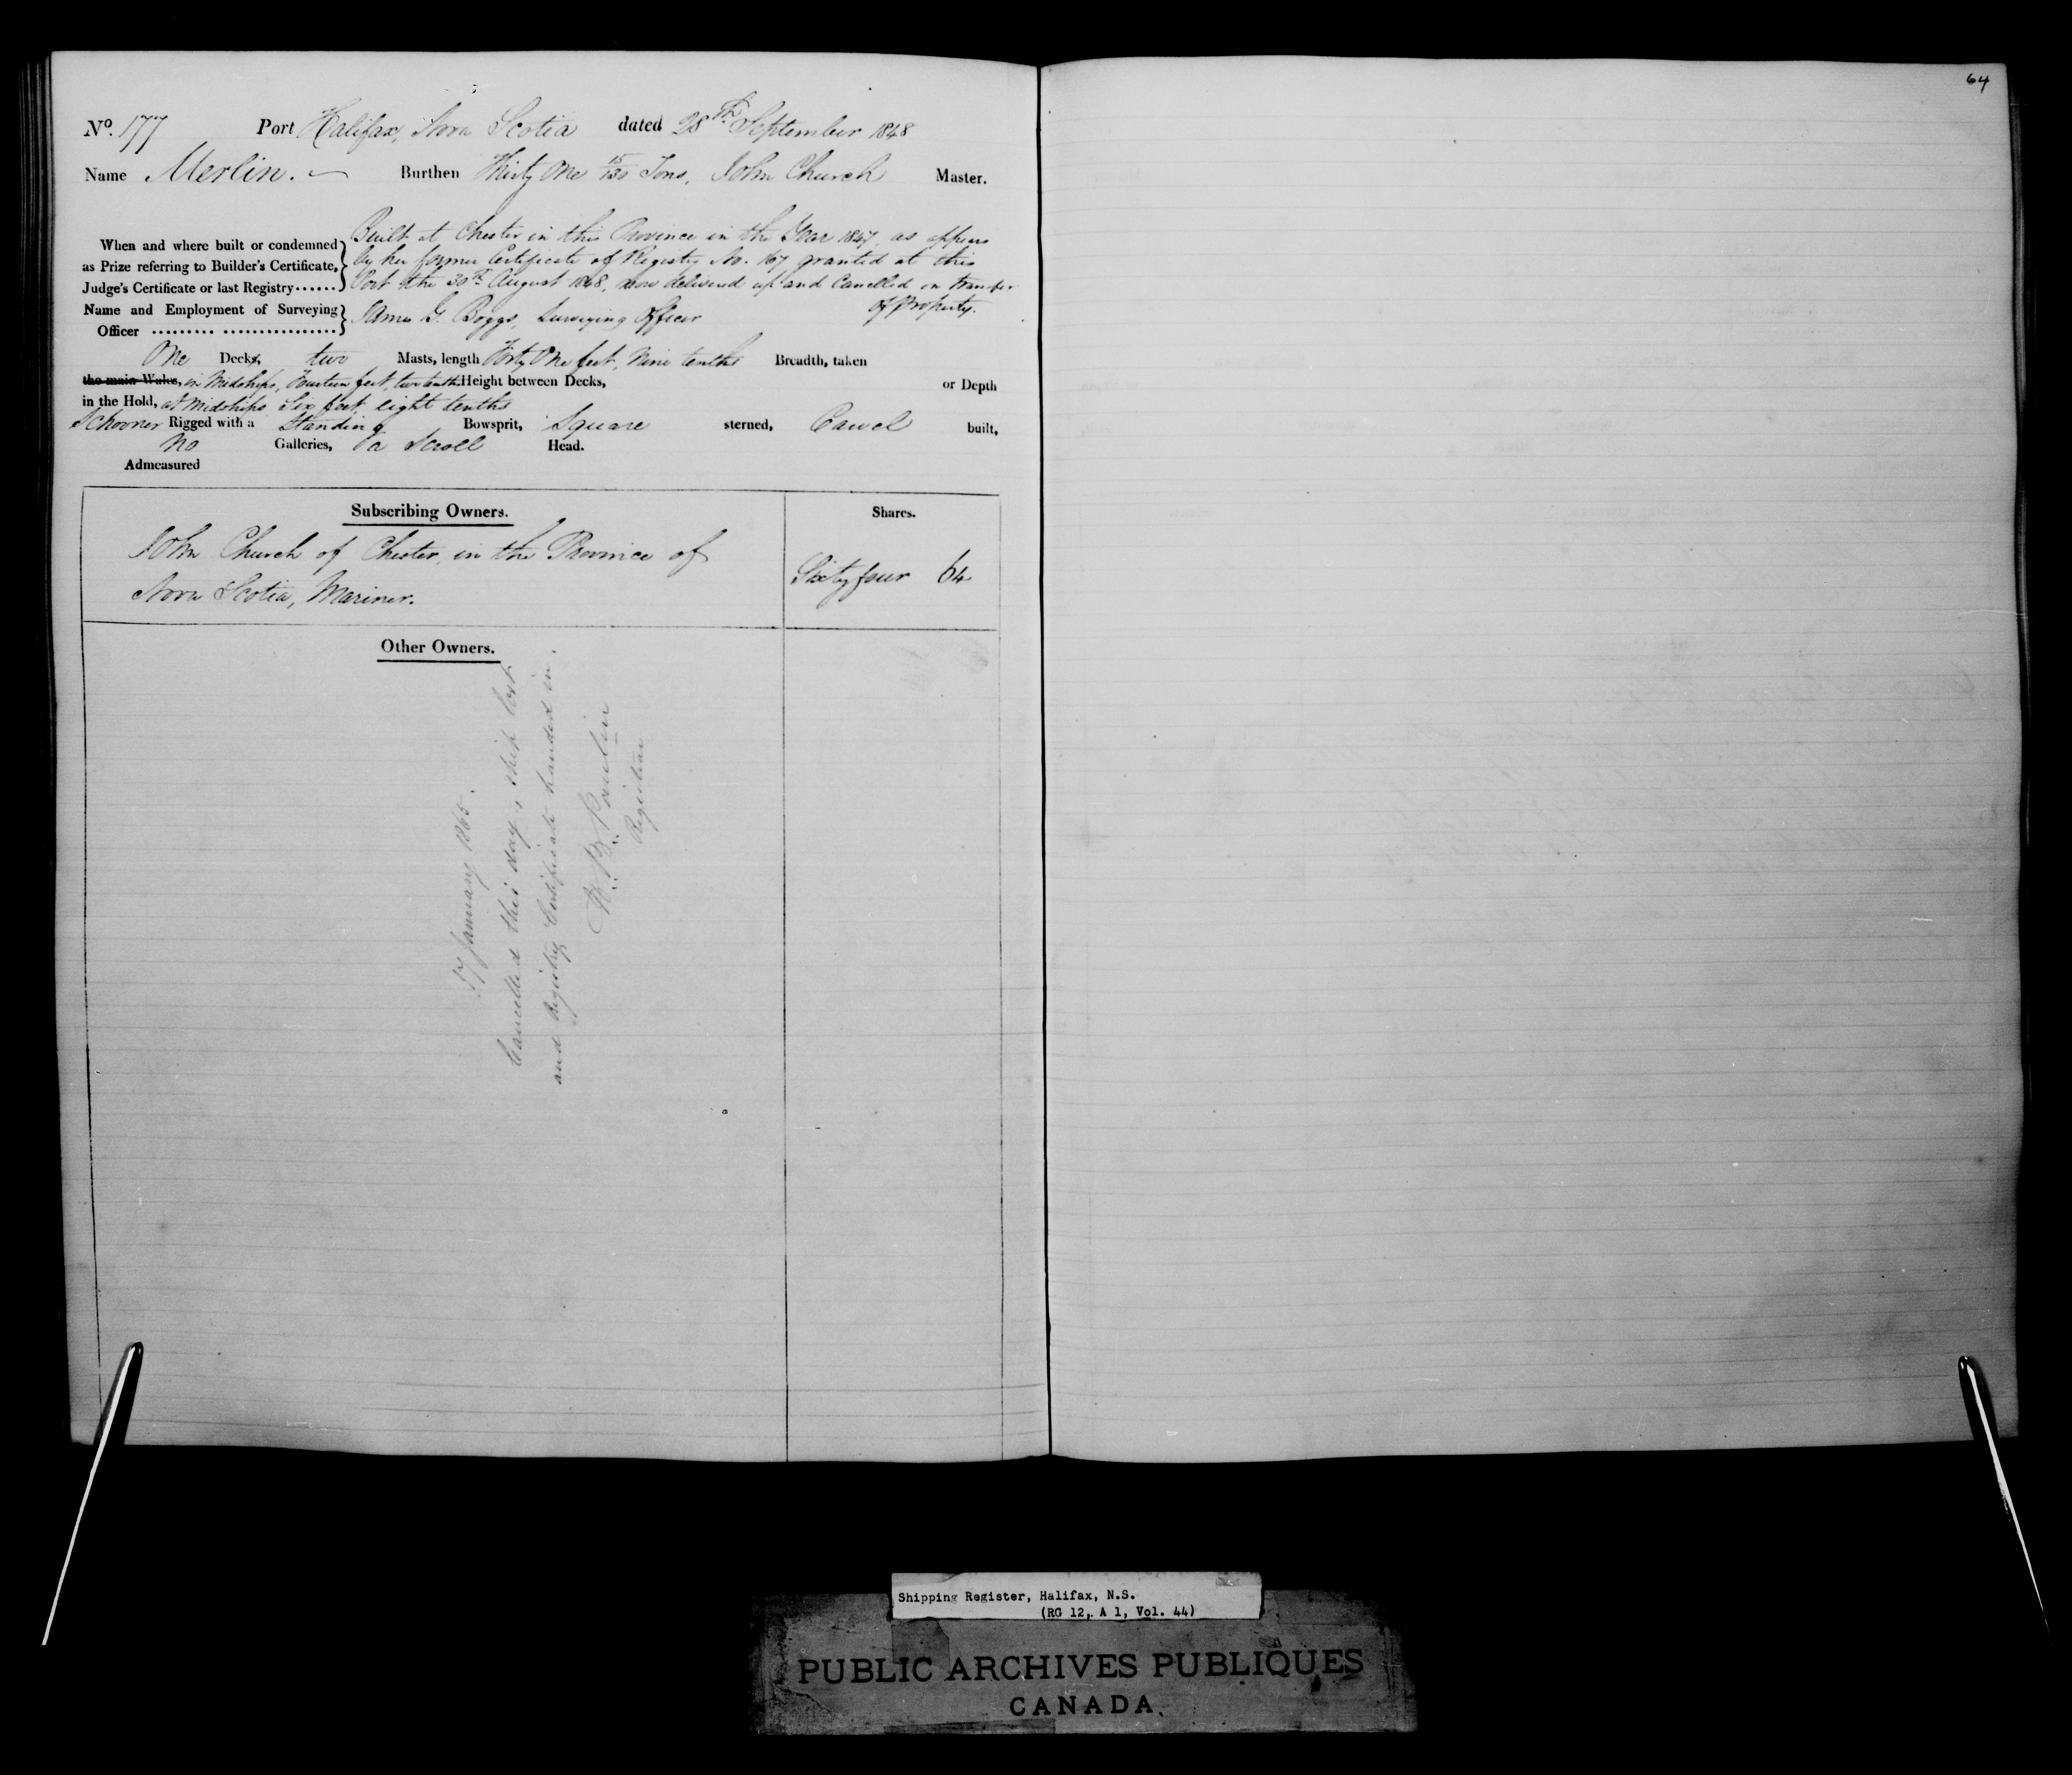 64
No. 177 Port Halifax, Nova Scotia dated 28th September 1848
Name Merlin. Burthen Thirty One 15/130 Tons, John Church Master.
When and where built or condemned as Prize referring to Builder's Certificate, Judge's Certificate or last Registry......
Built at Chester in this Province in the Year 1847, as appears
by her former Certificate of Registry No. 167 granted at this
Port the 30th August 1848, now delivered up and Cancelled on transfer
of Property.
Name and Employment of Surveying Officer
James G. Boggs, Surveying Officer
One Decks, two Masts, length Forty One feet, Nine tenths Breadth, taken
the main Wales, in Midships, Fourteen feet, two tenths Height between Decks, or Depth
in the Hold, at Midships Six feet, eight tenths
Schooner Rigged with a Standing Bowsprit, Square sterned, Carvel built,
No Galleries, a Scroll Head.
Admeasured
Subscribing Owners. Shares.
John Church of Chester, in the Province of
Nova Scotia, Mariner. Sixty four 64
Other Owners.
January 1865.
Cancelled this day, ship lost
and Registry Certificate handed in.
Registrar
Shipping Register, Halifax, N.S.
(RG 12, A 1, Vol. 44)
PUBLIC ARCHIVES PUBLIQUES
CANADA